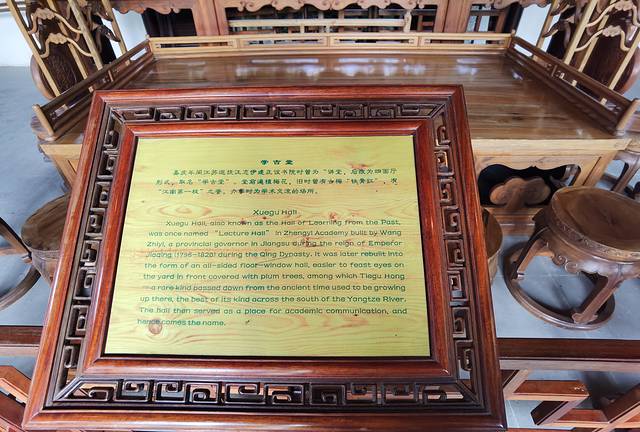 学古堂
嘉庆年间江苏巡抚汪志伊建正谊书院时曾为“讲堂，后改为四面厅
形式，取名“学古堂”。堂前遍植梅花，旧时曾有古梅“铁骨红”，有
“江南第一枝”之誉。办事时为学术交流的场所。
Xuegu Hall
Xuegu Hall, also known as the Hall of Learning from the Past,
was once named “Lecture Hall” in Zhengyi Academy built by Wang
Zhiyi, a provincial governor in Jiangsu during the reign of Emperor
Jiaqing (1796-1820) during the Qing Dynasty. It was later rebuilt into
the form of an all-sided floor-window hall, easier to feast eyes on
the yard in front covered with plum trees, among which Tiegu Hong
— a rare kind passed down from the ancient time used to be growing
up there, the best of its kind across the south of the Yangtze River.
The hall then served as a place for academic communication, and
hence comes the name.